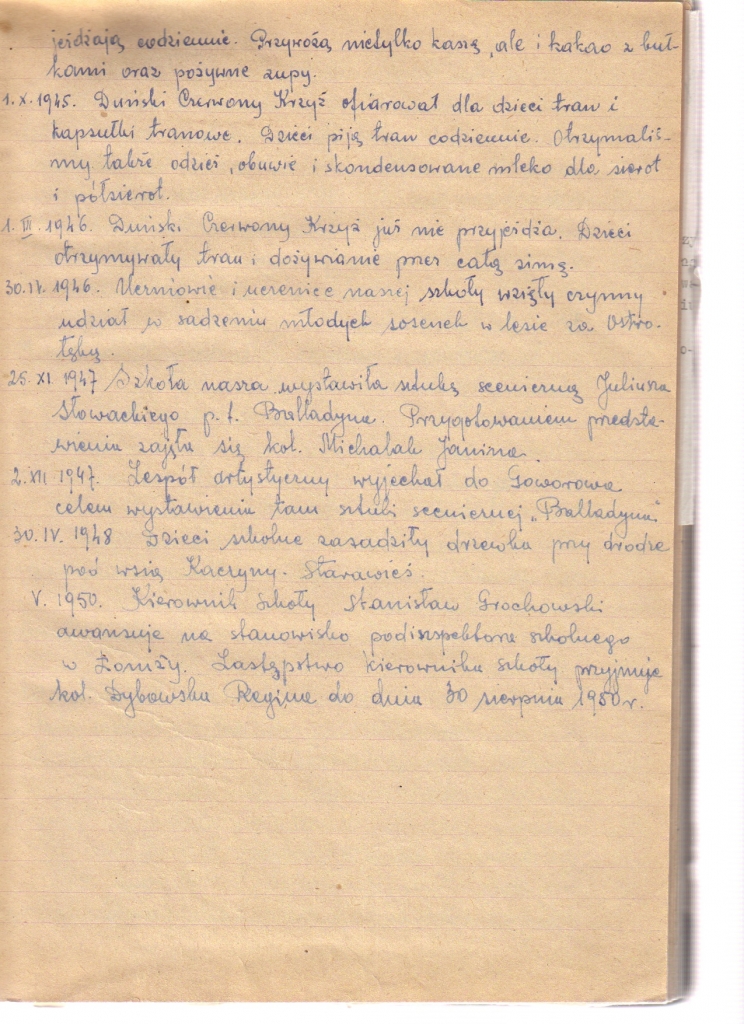 jeżdżają codziennie. Przywożą nietylko kaszę, ale i kakao z buł-
kami oraz pożywne zupy.
1. X. 1945. Duński Czerwony Krzyż ofiarował dla dzieci tran i
kapsułki tranowe. Dzieci piją tran codziennie. Otrzymaliś-
my także odzież, obuwie i skondensowane mleko dla sierot
i półsierot.
1. III. 1946. Duński Czerwony Krzyż już nie przyjeżdża. Dzieci
otrzymywały tran i dożywianie przez całą zimę.
30. IV. 1946. Uczniowie i uczenice naszej szkoły wzięły czynny
udział w sadzeniu młodych sosenek w lesie za Ostro-
łęką.
25. XI. 1947 Szkoła nasza wystawiła sztukę sceniczną Juliusza
Słowackiego p. t. Balladyna. Przygotowaniem przedsta-
wienia zajęła się kol. Michalak Janina.
2. XII 1947. Zespół artystyczny wyjechał do Goworowa
celem wystawienia tam sztuki scenicznej „Balladyna"
30. IV. 1948 Dzieci szkolne zasadziły drzewka przy drodze
pod wsią Kaczyny-Starawieś.
V. 1950. Kierownik szkoły Stanisław Grochowski
awansuje na stanowisko podinspektora szkolnego
w Łomży. Zastępstwo kierownika szkoły przyjmuje
kol. Dybowska Regina do dnia 30 sierpnia 1950 r.